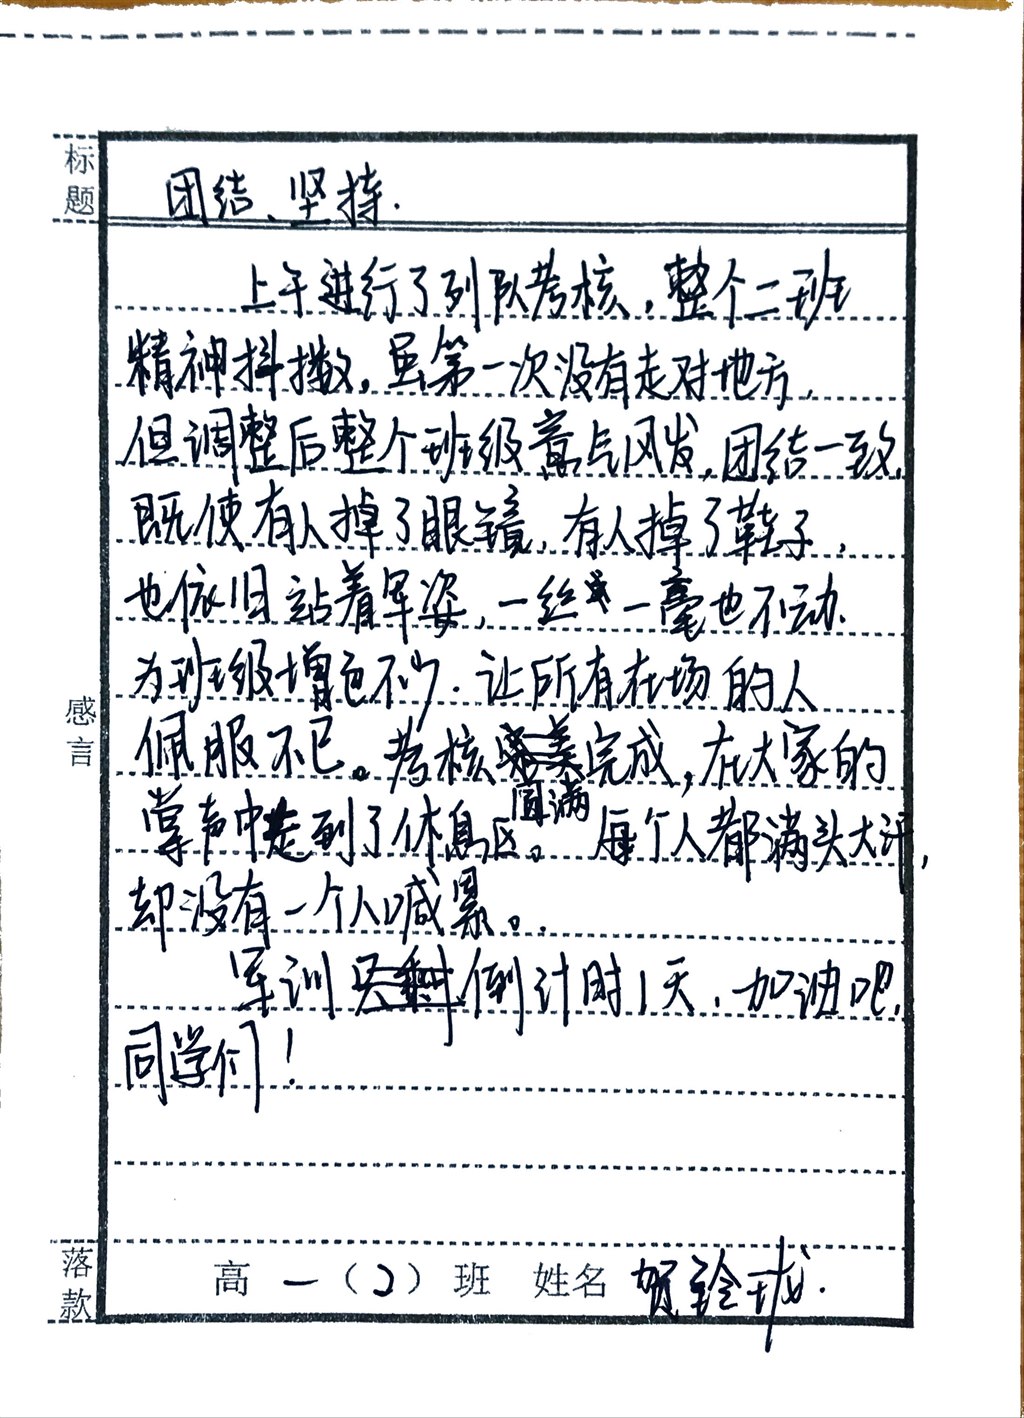 标题
团结、坚持.
上午进行了列队考核，整个二班
精神抖擞。虽第一次没有走对地方，
但调整后整个班级意气风发，团结一致，
既使有人掉了眼镜，有人掉了鞋子，
也依旧站着军姿，一丝一毫也不动.
为班级增色不少.让所有在场的人
感言
佩服不已。考核圆满完成，在大家的
掌声中走到了休息区。每个人都满头大汗，
却没有一个人喊累。
军训倒计时1天，加油吧，
同学们！
落款
高一（2）班 姓名 贺